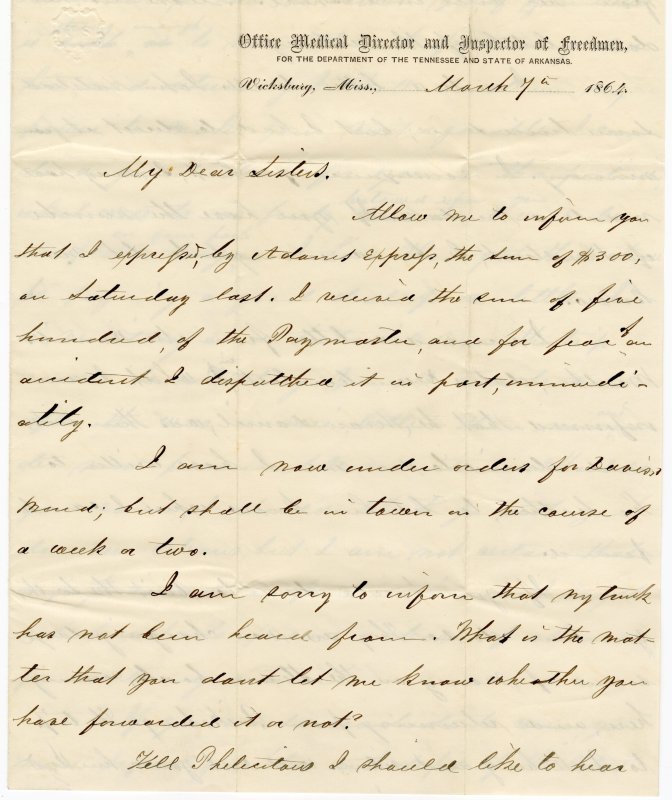 Office Medical Director and Inspector of Freedmen,
FOR THE DEPARTMENT OF THE TENNESSEE AND STATE OF ARKANSAS.
Vicksburg, Miss., March 7th 1864.
My Dear Sisters.
Allow me to inform you
that I expressed, by Adams Express, the sum of $300,
on Saturday last. I received the sum of five
hundred, of the Paymaster, and for fear of an
accident I dispatched it in part, immedi-
atily.
I am now under orders for Davis,s
Bend; but shall be in town in the course of
a week or two.
I am sorry to inform that my trunk
has not been heard from. What is the mat-
ter that you dont let me know wheather you
have forwarded it or not?
Tell Philicitous I should like to hear